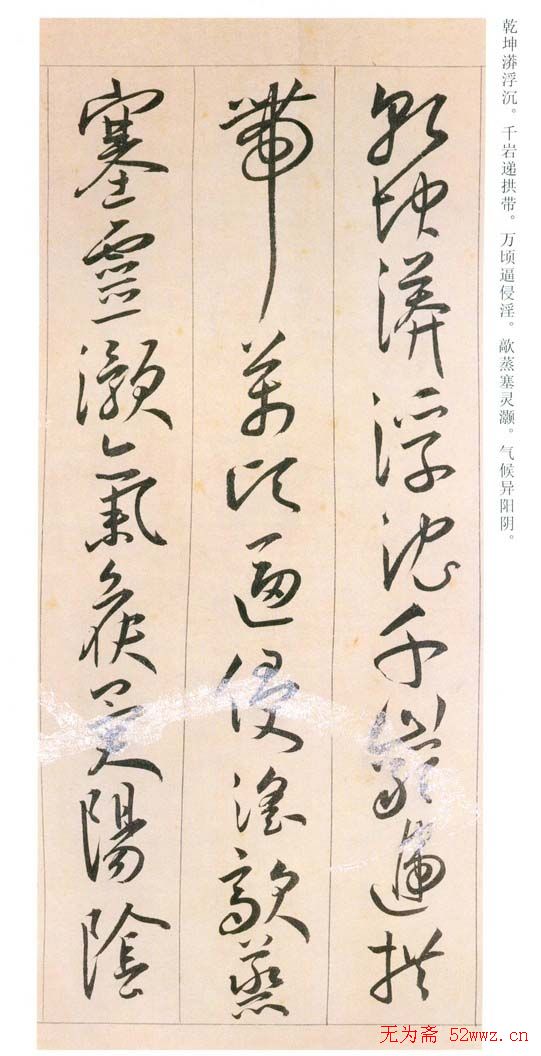 乾坤漭浮沉。千岩递拱带。万顷逼侵淫。歊蒸塞灵灏。气候异阳阴。
乾坤漭浮沈千巖遞拱
帶萬頃逼侵淫歊蒸
塞靈灝氣候異陽陰
无为斋 52wwz.cn